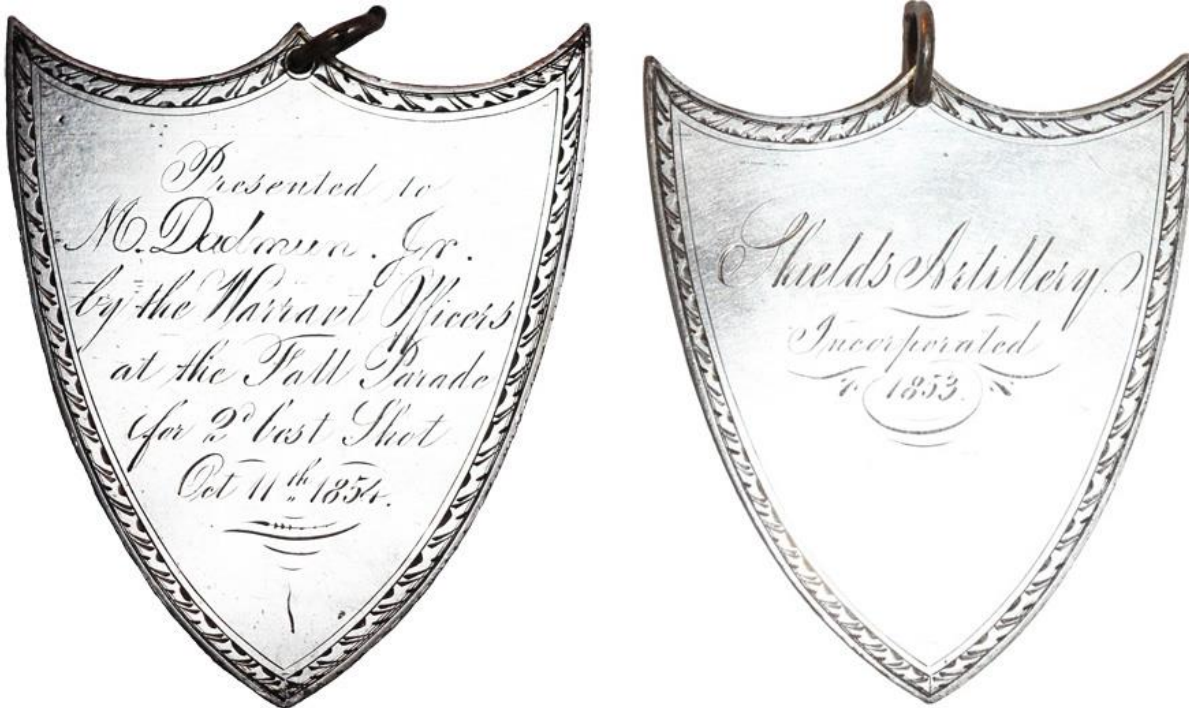 Presented to
M. Dadmun. Jr.
by the Warrant Officers
at the Fall Parade
for 2d best Shot
Oct 11th 1854.
Shields Artillery
Incorporated
1853.